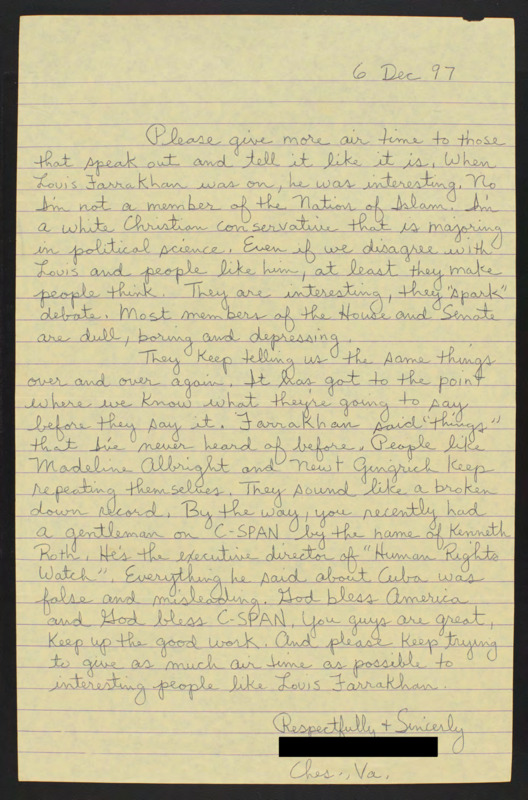 6 Dec 97
Please give more air time to those
that speak out and tell it like it is. When
Louis Farrakhan was on, he was interesting. No
I'm not a member of the Nation of Islam. I'm
a white Christian conservative that is majoring
in political science. Even if we disagree with
Louis and people like him, at least they make
people think. They are interesting, they "spark"
debate. Most members of the House and Senate
are dull, boring and depressing.
They keep telling us the same things
over and over again. It has got to the point
where we know what they're going to say
before they say it. Farrakhan said "things"
that I've never heard of before. People like
Madeline Albright and Newt Gingrich keep
repeating themselves. They sound like a broken
down record. By the way, you recently had
a gentleman on C-SPAN by the name of Kenneth
Roth. He's the executive director of "Human Rights
Watch". Everything he said about Cuba was
false and misleading. God bless America
and God bless C-SPAN. You guys are great,
keep up the good work. And please keep trying
to give as much air time as possible to
interesting people like Louis Farrakhan.
Respectfully + Sincerly
Ches., Va.